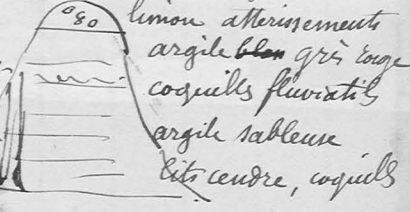 limon atterissements
argile grès rouge
coquilles fluviatils
argile sableuse
lits cendre, coquills